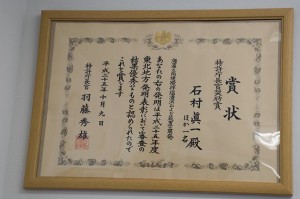 賞状
特許庁長官奨励賞
石村眞一殿
ほか一名
あなたの右の発明は平成二十五年度
東北地方発明表彰において審査の
結果優秀なものと認められたので
これを賞します
平成二十五年十月九日
特許庁長官 羽藤秀雄